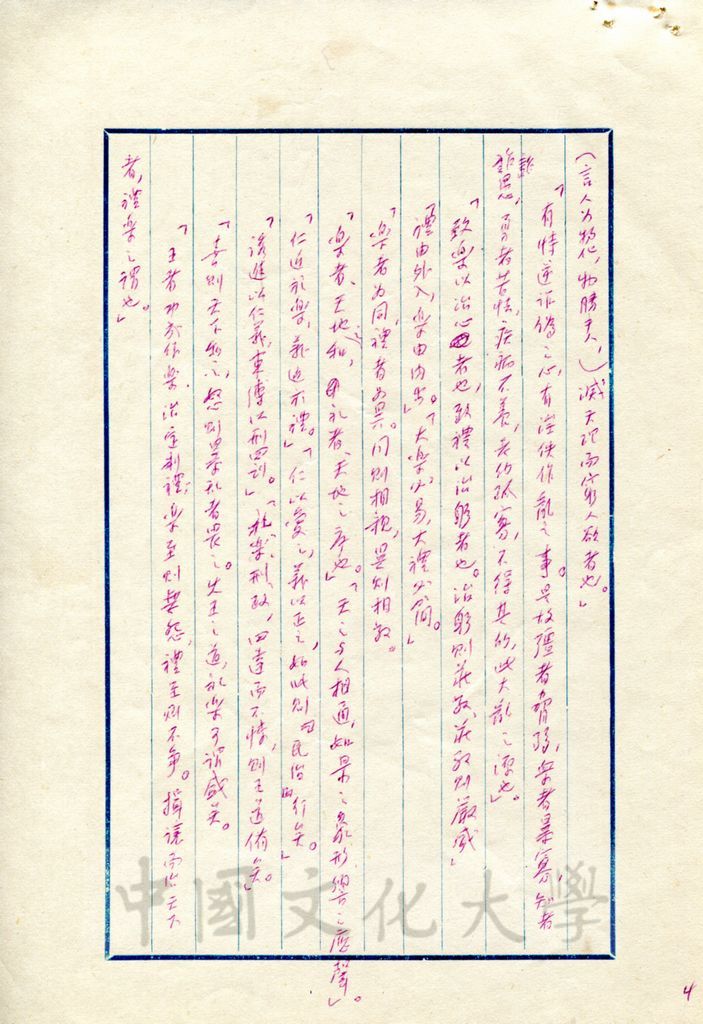 (言人为物化,物勝天,)滅天理而窮人欲者也。」
「有悖逆诈偽之心,有淫佚作亂之事。是故彊者脅弱,众者暴寡,知者
詐愚,勇者苦怯,疾病不養,老幼孤寡,不得其所,此大亂之道也。
「致樂以治心者也,致禮以治躬者也。治躬則莊敬,莊敬則嚴威」
「禮由外入,樂由內出。」「大樂必易,大禮必簡。」
「樂者为同,禮者为異。同則相親,異則相敬。
「樂者、天地之和,礼者、天地之序也。」「天之与人相通,如景之象形,響之應聲」。
「仁近於樂,義近於禮。」「仁以愛之,義以正之,如此則民治行矣。」
以仁義,以刑罰」「禮樂刑政,四達而不悖,則王道備矣。」
「喜則天下和之,怒則暴亂者畏之。先王之道,禮樂可謂盛矣。
「王者功成作樂,治定制禮。樂至則無怨,禮至則不争。揖讓而治天下
者,禮樂之謂也。」
中國文化大學
4